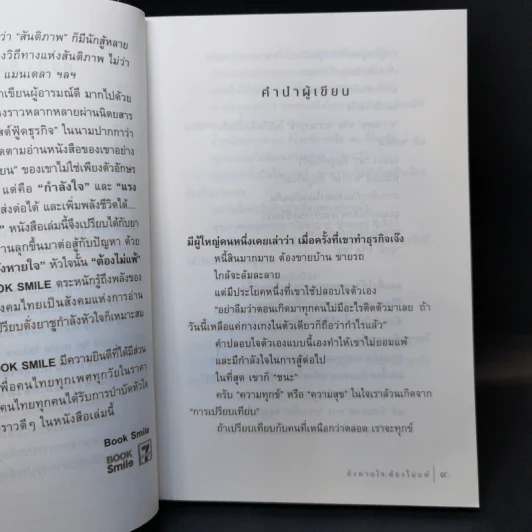 ว่า "สันติภาพ" ก็มีนักสู้หลาย
งวิถีทางแห่งสันติภาพ ไม่ว่า
แมนเดลา ฯลฯ
าเขียนผู้อารมณ์ดี มากไปด้วย
งราวหลากหลายผ่านนิตยสาร
สต์ฟู้ดธุรกิจ" ในนามปากกาว่า
ดตามอ่านหนังสือของเขาอย่าง
ยน" ของเขาไม่ใช่เพียงตัวอักษร
แต่คือ "กำลังใจ" และ "แรง
ส่งต่อได้ และเพิ่มพลังชีวิตได้...
" หนังสือเล่มนี้จึงเปรียบได้กับยา
านลุกขึ้นมาต่อสู้กับปัญหา ด้วย
งหายใจ" หัวใจนั้น "ต้องไม่แพ้"
OOK SMILE ตระหนักรู้ถึงพลังของ
งคมไทยเป็นสังคมแห่งการอ่าน
เปรียบดั่งยาชูกำลังหัวใจก็เหมาะสม
OOK SMILE มีความยินดีที่ได้มีส่วน
พื่อคนไทยทุกเพศทุกวัยในราคา
คนไทยทุกคนได้รับการบำบัดหัวใจ
ราวดีๆ ในหนังสือเล่มนี้
Book Smile
BOOK
Smile
คำนำผู้เขียน
มีผู้ใหญ่คนหนึ่งเคยเล่าว่า เมื่อครั้งที่เขาทำธุรกิจเจ๊ง
หนี้สินมากมาย ต้องขายบ้าน ขายรถ
ใกล้จะล้มละลาย
แต่มีประโยคหนึ่งที่เขาใช้ปลอบใจตัวเอง
"อย่าลืมว่าตอนเกิดมาทุกคนไม่มีอะไรติดตัวมาเลย ถ้า
วันนี้เหลือแค่กางเกงในตัวเดียวก็ถือว่ากำไรแล้ว"
คำปลอบใจตัวเองแบบนี้เองทำให้เขาไม่ยอมแพ้
และมีกำลังใจในการสู้ต่อไป
ในที่สุด เขาก็ "ชนะ"
ครับ "ความทุกข์" หรือ "ความสุข" ในใจเราล้วนเกิดจาก
"การเปรียบเทียบ"
ถ้าเปรียบเทียบกับคนที่เหนือกว่าตลอด เราจะทุกข์
ยังหายใจ ต้องไม่แพ้